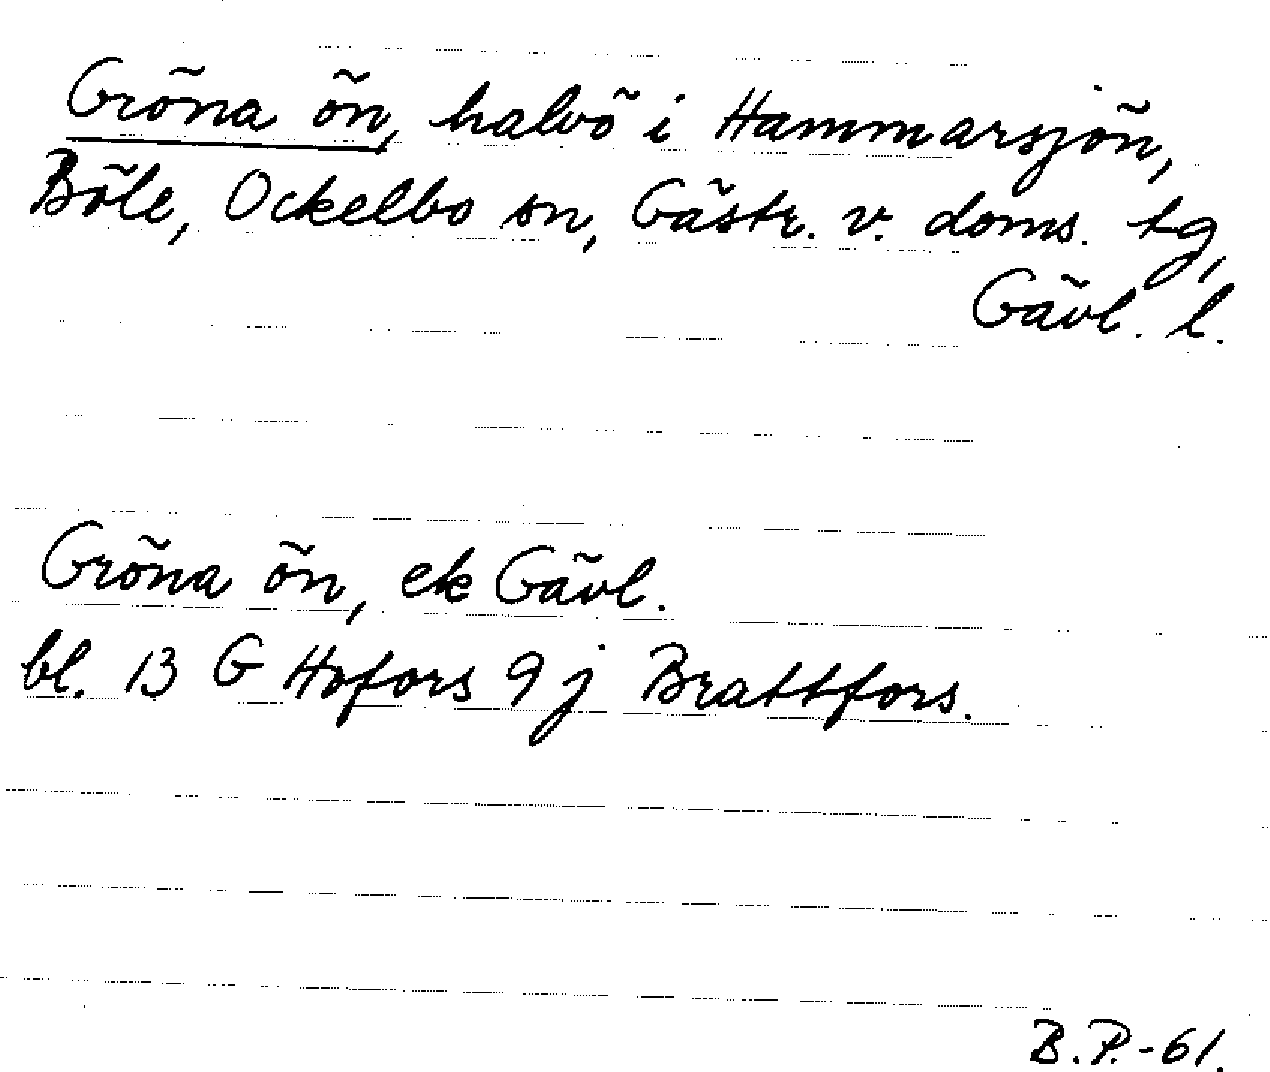 Gröna ön, halvö i Hammarsjön,
Böle, Ockelbo sn, Gästr. v. doms. tg,
Gävl. l.
Gröna ön, ek Gävl.
bl. 13 G Hofors 9 j Brattfors.
B.P.-61.